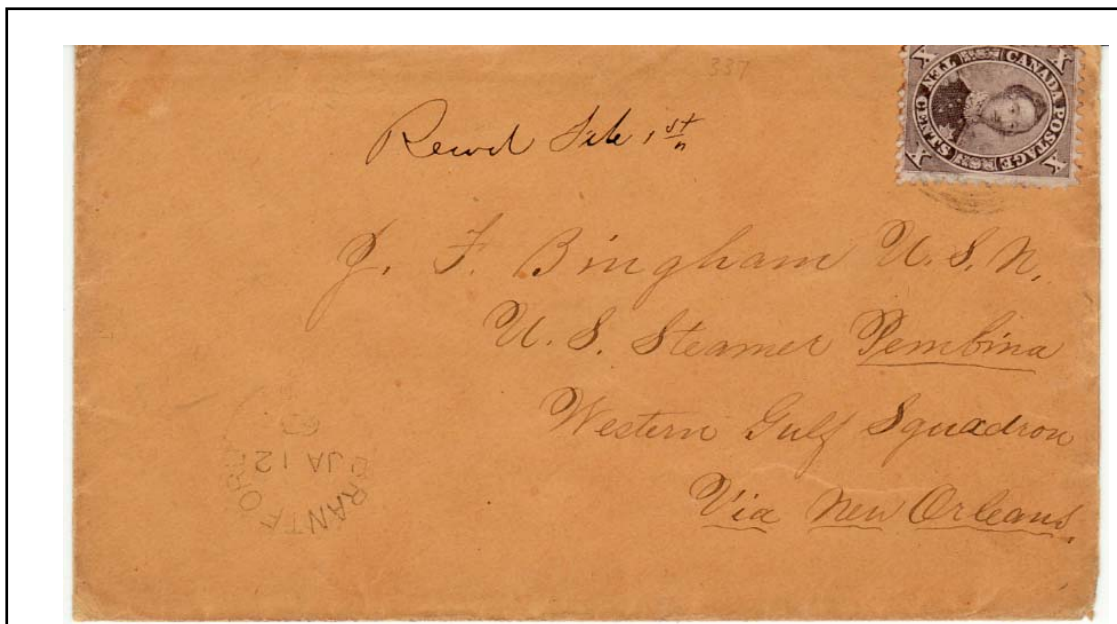 337
CANADA POSTAGE TEN CENTS
X X X X
Recvd Feb 1st
J. F. Bingham U.S.N.
U.S. Steamer Pembina
Western Gulf Squadron
Via New Orleans.
BRANTFORD
JA 12